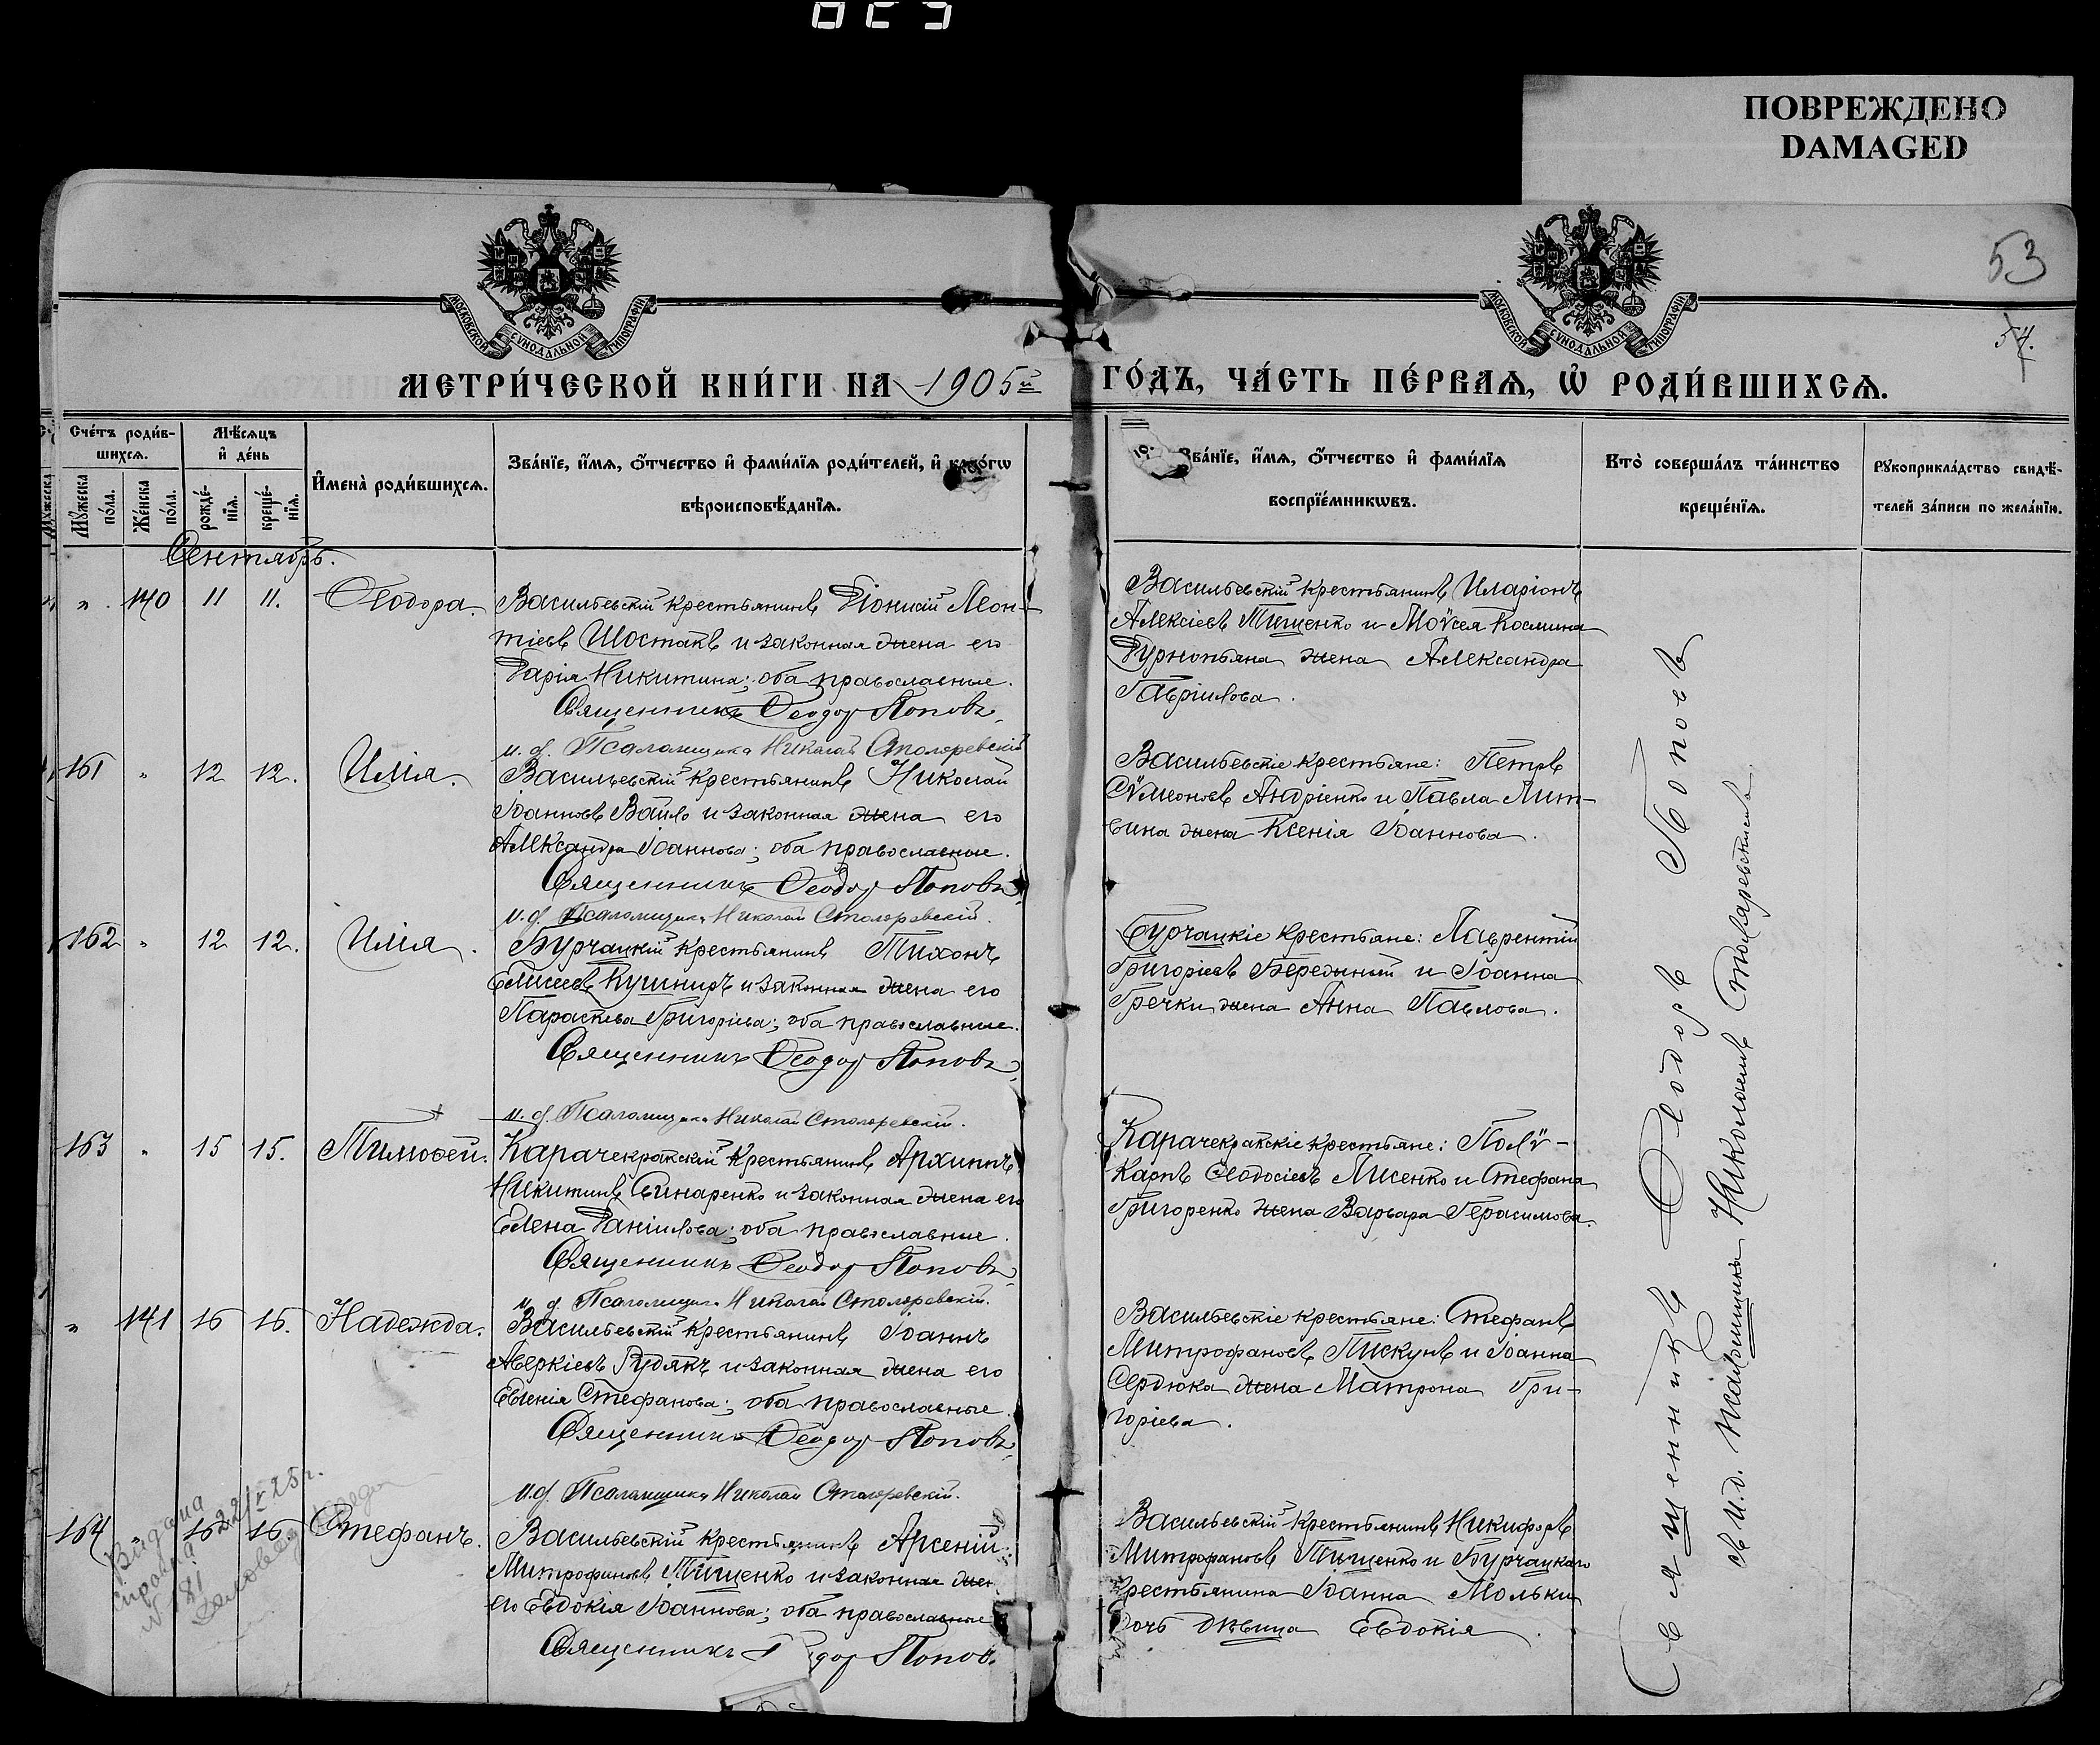 ПОВРЕЖДЕНО
DAMAGED
МОСКОВСКОЙ СѴНОДАЛЬНОЙ ТИПОГРАФІИ
МОСКОВСКОЙ СѴНОДАЛЬНОЙ ТИПОГРАФІИ
53
54.
МЕТРИ́ЧЕСКОЙ КНИ́ГИ НА 1905й ГО́ДЪ, ЧА́СТЬ ПЕ́РВАѦ, Ѡ҆ РОДИ́ВШИХСѦ.
Сче́тъ роди́в-
шихсѧ.
Мꙋ́жеска по́ла.
Же́нска по́ла.
Мѣ́сѧцъ
и҆ де́нь
рожде́-
нїѧ.
креще́-
нїѧ.
И҆мена̀ роди́вшихсѧ.
Зва́нїе, и҆́мѧ, ѻ҆́тчество и҆ фами́лїѧ роди́телей, и҆ како́гѡ
вѣроисповѣ́данїѧ.
Зва́нїе, и҆́мѧ, ѻ҆́тчество и҆ фами́лїѧ
воспрїе́мникѡвъ.
Кто̀ соверша́лъ та́инство
креще́нїѧ.
Рꙋкоприкла́дство свидѣ́-
телей за́писи по жела́нїю.
Сентябрь.
„ 140 11 11. Ѳеодора.
Васильевскій крестьянинъ Діонисій Леон-
тіевъ Шостакъ и законная жена его
Дарія Никитина; оба православные.
Священникъ Ѳеодор Поповъ
и. д. Псаломщика Николай Столяревскій
Васильевскій крестьянинъ Иларіонъ
Алексіевъ Тищенко и Моѵсея Космина
жена Александра
Гавріилова.
161 „ 12 12. Илія.
Васильевскій крестьянинъ Николай
Іоанновъ Вайло и законная жена его
Александра Іоаннова; оба православные.
Священникъ Ѳеодор Поповъ
и. д. Псаломщика Николай Столяревскій.
Васильевскіе крестьяне: Петръ
Сѵмеоновъ Андріенко и Павла Лит-
вина жена Ксенія Іоаннова.
162 „ 12 12. Илія.
Бурчацкій крестьянинъ Тихонъ
Елисеевъ Кушниръ и законная жена его
Параскева Григоріева; оба православные.
Священникъ Ѳеодор Поповъ
и. д. Псаломщика Николай Столяревскій.
Бурчацкіе крестьяне: Лаврентій
Григоріевъ и Іоанна
Гречки жена Анна Павлова.
163 „ 15 15. Тимоѳей.
Карачекракскій крестьянинъ Архиппъ
Никитинъ и законная жена его
Елена Даніилова; оба православные.
Священникъ Ѳеодор Поповъ
и. д. Псаломщика Николай Столяревскій.
Карачекракскіе крестьяне: Полѵ-
карпъ Ѳеодосіевъ Лисенко и Стефана
Григоренко жена Варвара Герасимова.
„ 141 16 16. Надежда.
Васильевскій крестьянинъ Іоаннъ
Аверкіевъ Рудякъ и законная жена его
Евгенія Стефанова; оба православные.
Священникъ Ѳеодор Поповъ
И. д. Псаломщика Николай Столяревскій.
Васильевскіе крестьяне: Стефанъ
Митрофановъ Пискунъ и Іоанна
Сердюка жена Матрона Гри-
горіева.
164 „ 16 16 Стефанъ.
Васильевскій крестьянинъ Арсеній
Митрофановъ Тищенко и законная жен
его Евдокія Іоаннова; оба православные
Священникъ Попов
Васильевскій крестьянинъ Никифоръ
Митрофановъ Тищенко и Бурчацкаго
крестьянина Іоанна Мольки
дочь дѣвица Евдокія.
Видана
Священникъ Ѳеодоръ Поповъ
съ и. д. псаломщика Николаемъ Столяревскимъ.